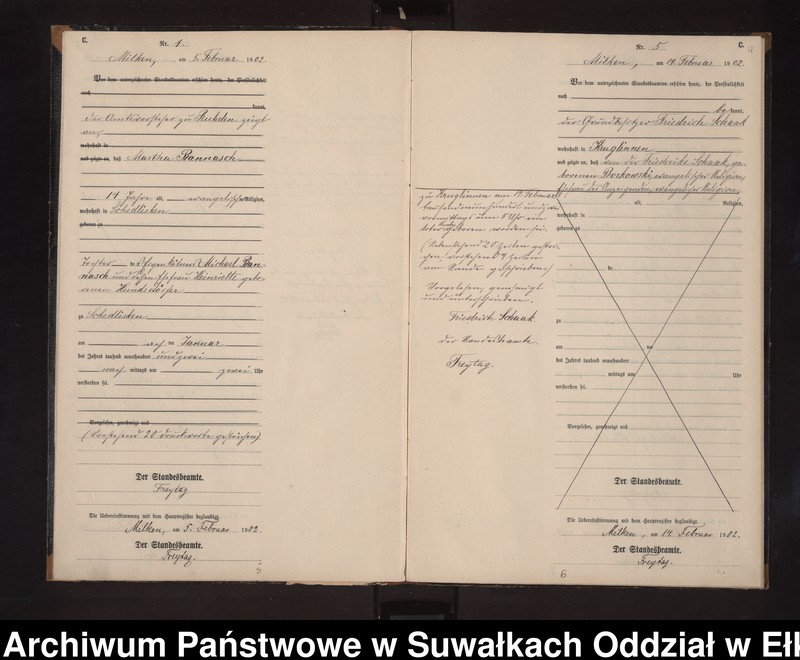 C.
Nr. 4.
Milken, am 5. Februar 1902
Vor dem unterzeichneten Standesbeamten erschien heute, der Persönlichkeit
nach
kannt,
der Amtsvorsteher zu Ruhden zeigt
an,
wohnhaft in
und zeigte an, daß Martha Bannasch
14 Jahre alt, evangelischer Religion,
wohnhaft in Schedlisken
geboren zu
Tochter des Michael Ban-
nasch und dessen Ehefrau Heinriette gebo-
renen Hundsdörfer
zu Schedlisken
am ten Januar
des Jahres tausend neunhundert und zwei
nach mittags um zwei Uhr
verstorben sei.
Vorgelesen, genehmigt und
(Vorstehend 20 Druckworte gestrichen)
Der Standesbeamte.
Freytag
Die Uebereinstimmung mit dem Hauptregister beglaubigt.
Milken, am 5. Februar 1902.
Der Standesbeamte.
Freytag.
5
C.
Nr. 5
Milken, am 14. Februar 1902.
Vor dem unterzeichneten Standesbeamten erschien heute, der Persönlichkeit
nach
be kannt,
der Grundbesitzer Friedrich Schaak
wohnhaft in Kruglinnen
und zeigte an, daß von der Friederike Schaak ge-
borenen Borkowski, evangelischer Religion,
Ehefrau des Anzeigenden, evangelischer Religion,
zu Kruglinnen am 14. Februar
tausend neunhundert und zwei
vormittags um 5 Uhr ein
totes geboren worden sei.
am Rande geschrieben)
Vorgelesen, genehmigt
und unterschrieben.
Friedrich Schaak
der Standesbeamte
Freytag.
alt, Religion,
wohnhaft in
geboren zu
de
zu
am ten
des Jahres tausend neunhundert
mittags um Uhr
verstorben sei.
Vorgelesen, genehmigt und
Der Standesbeamte.
Die Uebereinstimmung mit dem Hauptregister beglaubigt.
Milken, am 14. Februar 1902.
Der Standesbeamte.
Freytag.
6
Archiwum Państwowe w Suwałkach Oddział w Ełk